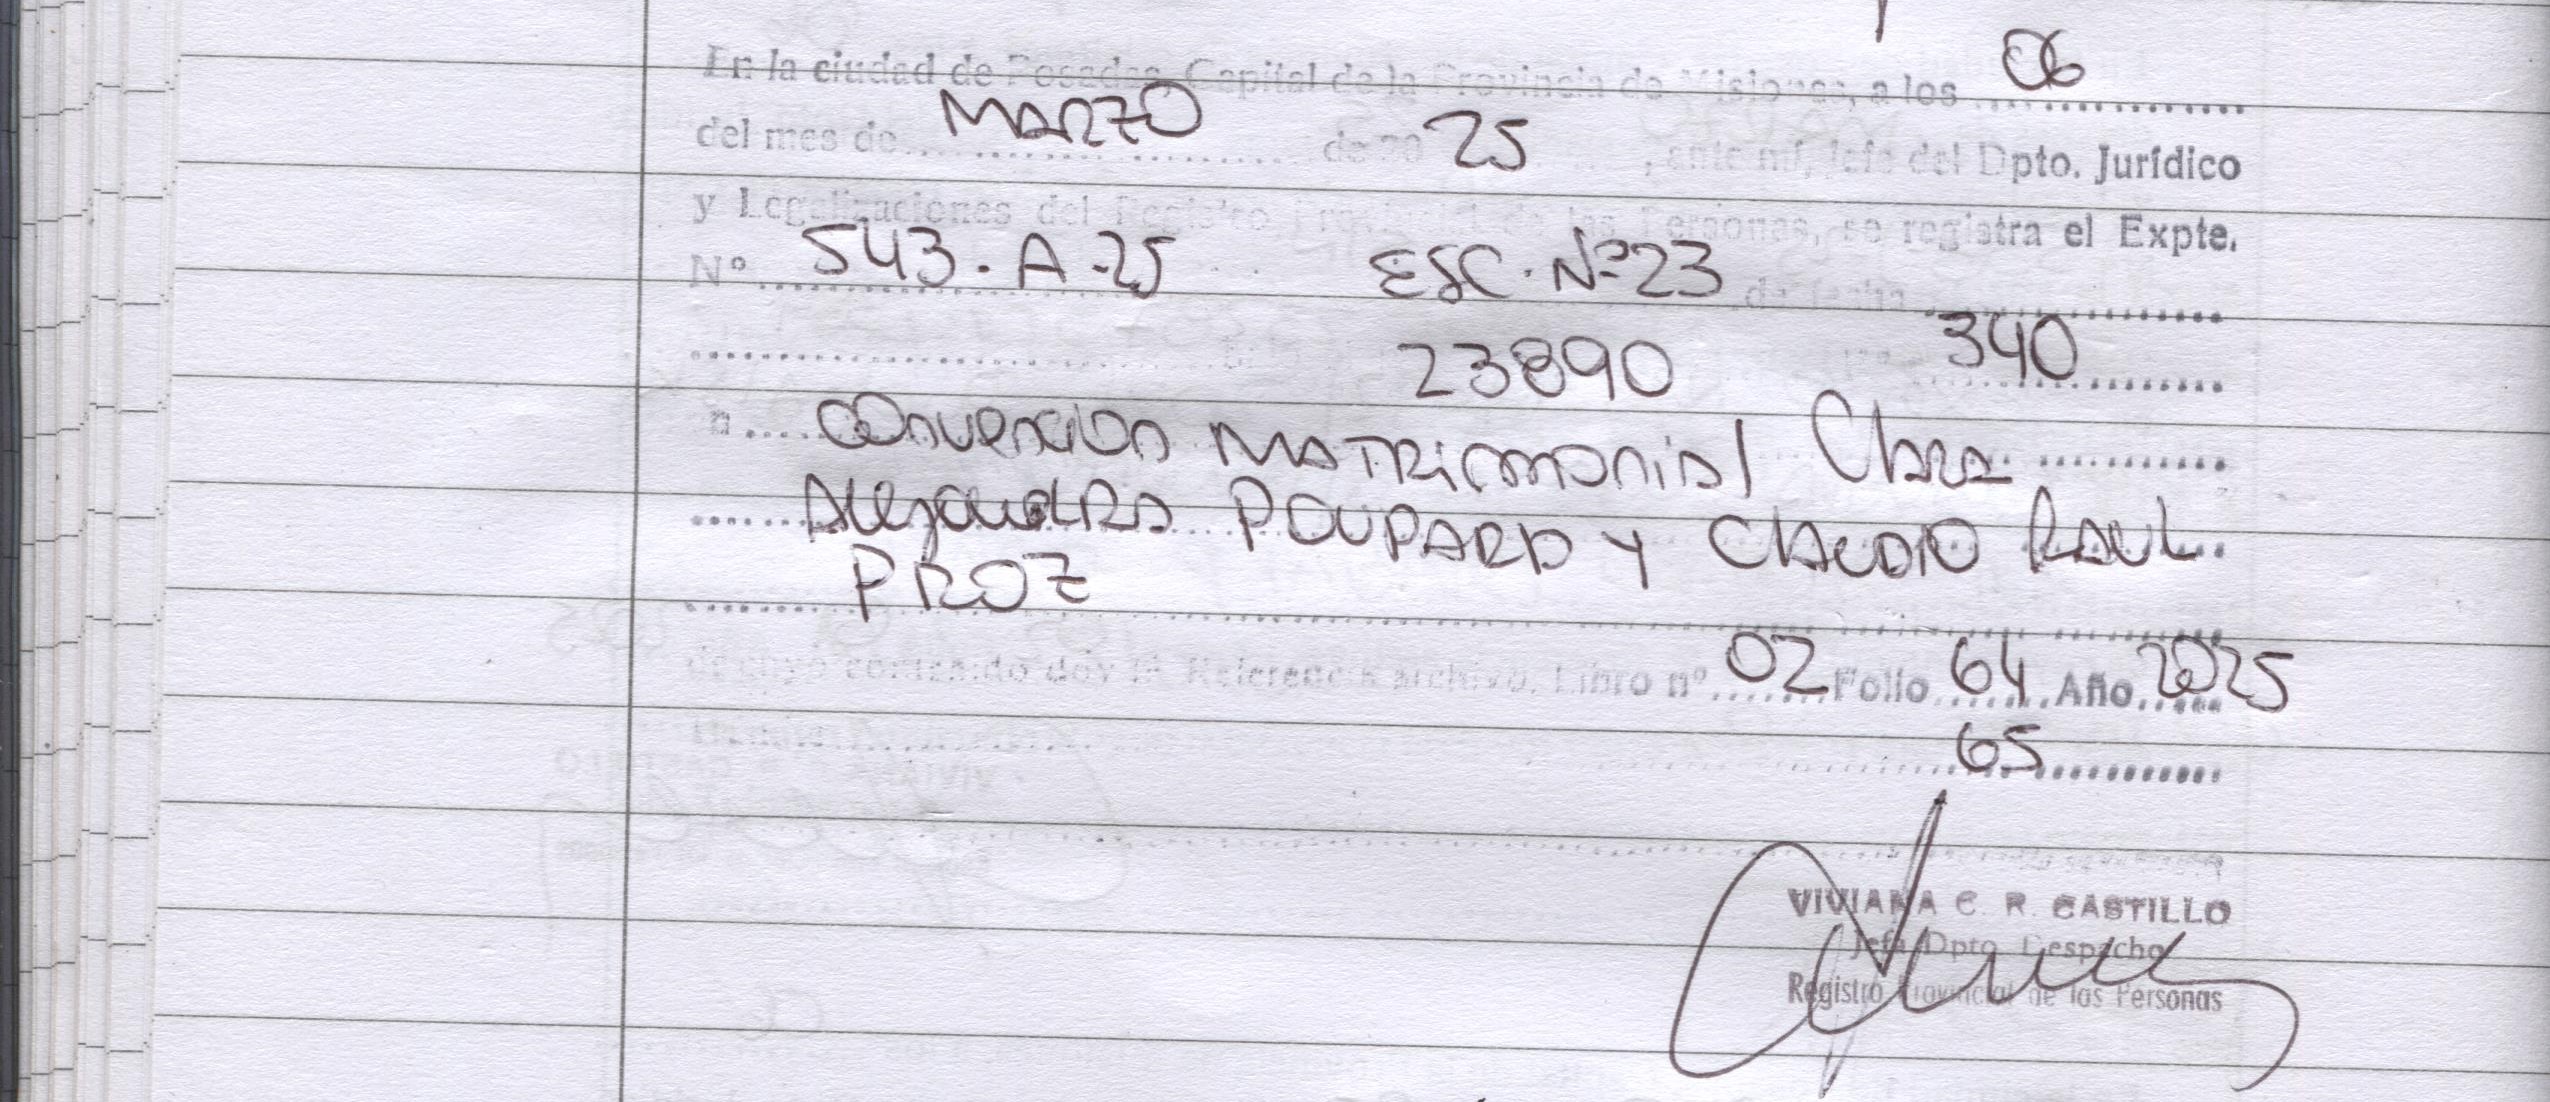 En la ciudad de Posadas, Capital de la Provincia de Misiones, a los 06
del mes de MARZO de 20 25, ante mí, Jefe del Dpto. Jurídico
y Legalizaciones del Registro Provincial de las Personas, se registra el Expte.
Nº 543-A-25 ESC. Nº 23 de fecha
23890 340
Convencion MATRimonial Clara
AlejandRa POUPARD y CLAUDIO RAUL
PROZ
de cuyo contenido doy fé. Referencia archivo. Libro nº 02 Folio 64 Año 2025
65
VIVIANA C. R. CASTILLO
Jefa Dpto. Despacho
Registro Provincial de las Personas